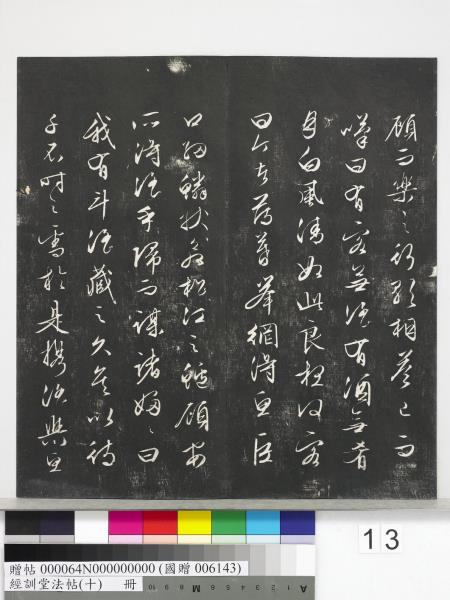 顧而樂之行歌相答已而
嘆曰有客無酒有酒無肴
月白風清如此良夜何客
曰今者薄暮舉網得魚巨
口細鱗狀若松江之鱸顧安
所得酒乎歸而謀諸婦〻曰
我有斗酒藏之久矣以待
子不時之需於是攜酒與魚
13
贈帖 000064N000000000 (國贈 006143)
經訓堂法帖(十) 冊